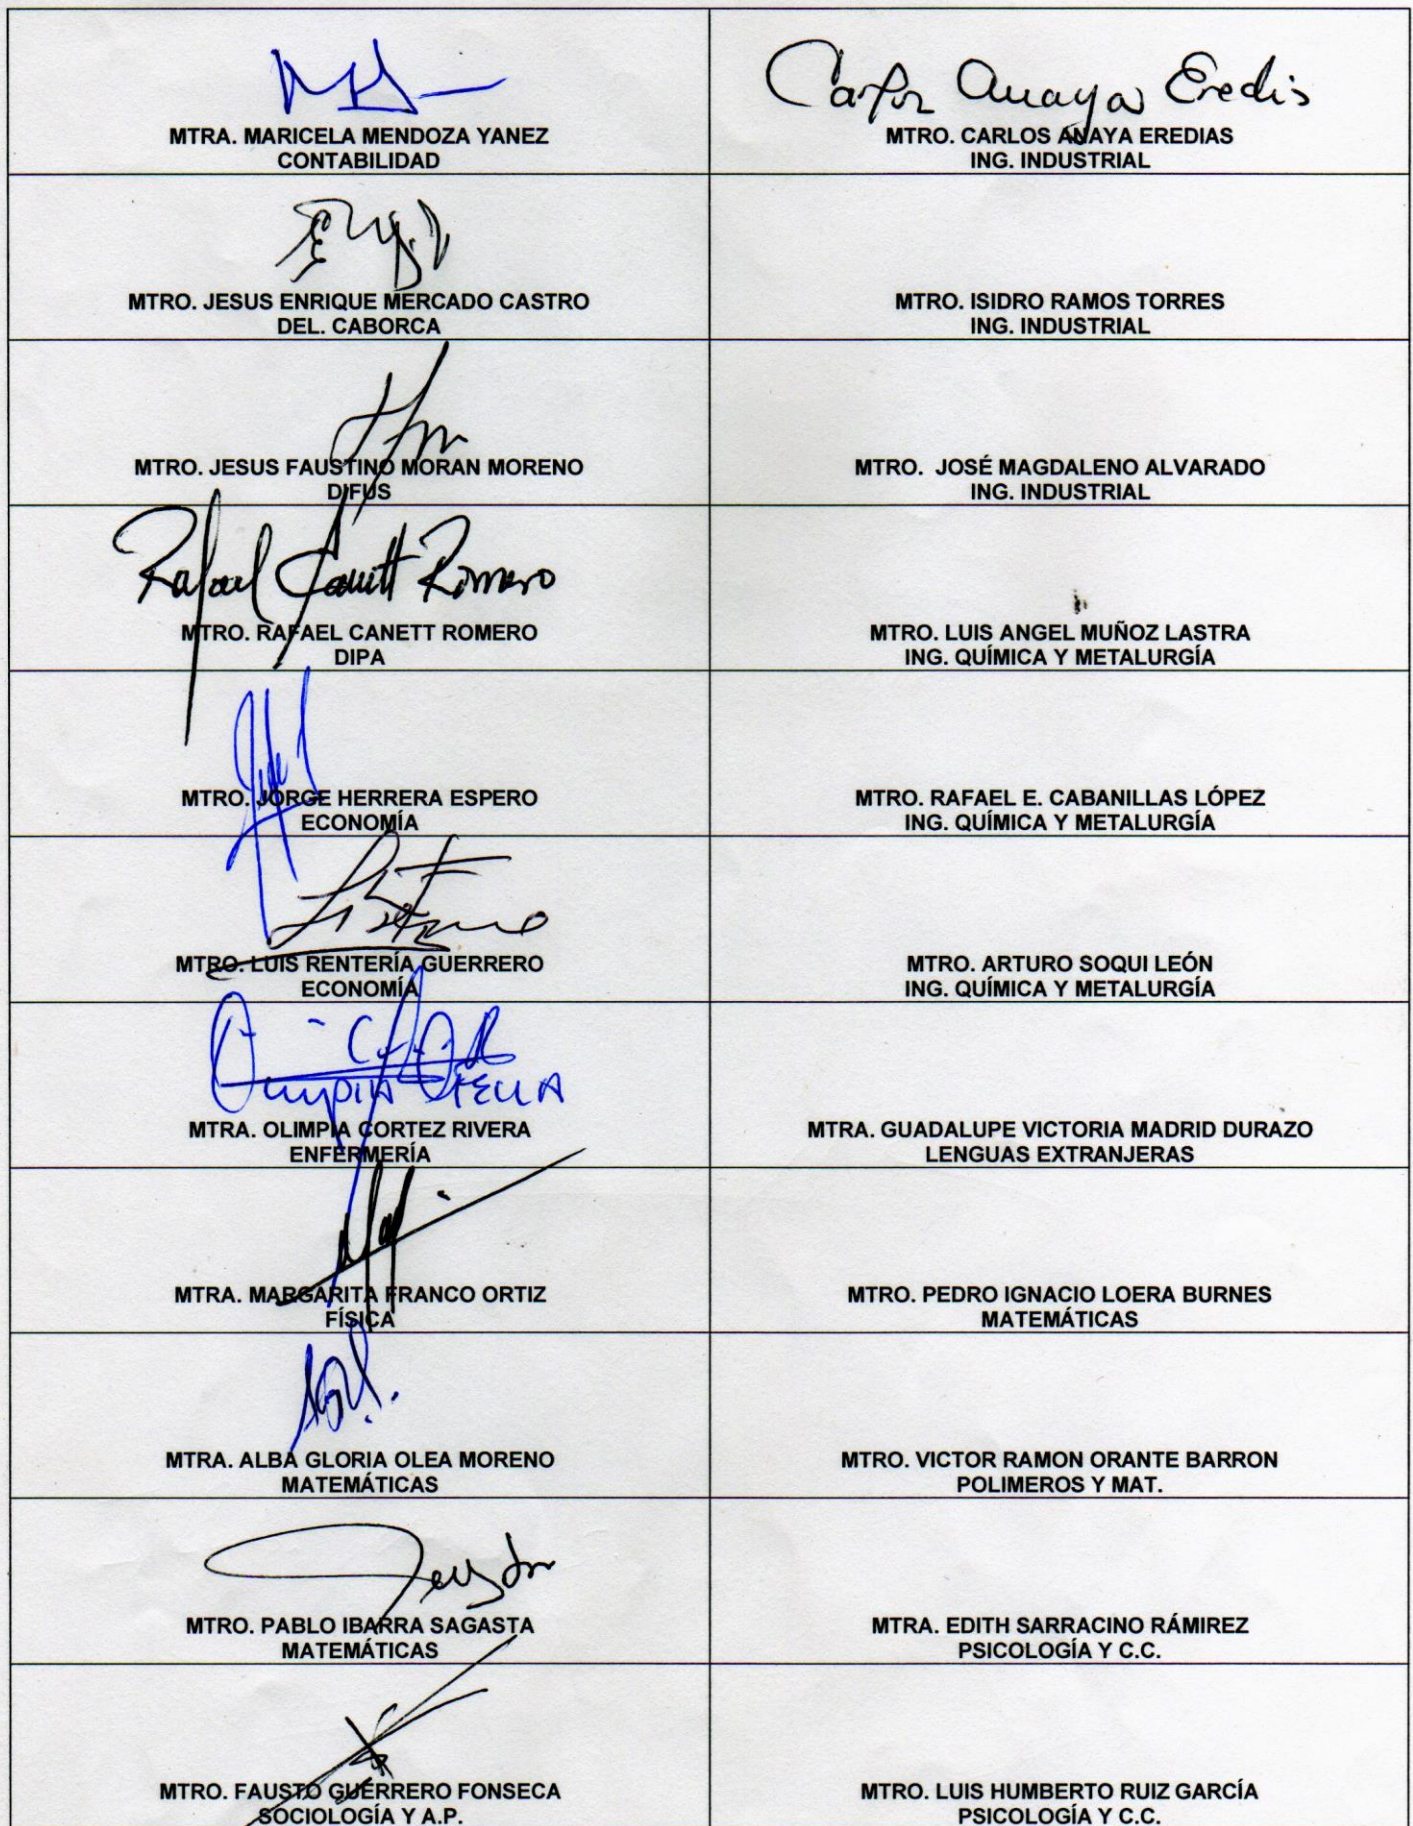 MTRA. MARICELA MENDOZA YANEZ
CONTABILIDAD
Carlos Anaya Eredis
MTRO. CARLOS ANAYA EREDIAS
ING. INDUSTRIAL
MTRO. JESUS ENRIQUE MERCADO CASTRO
DEL. CABORCA
MTRO. ISIDRO RAMOS TORRES
ING. INDUSTRIAL
MTRO. JESUS FAUSTINO MORAN MORENO
DIFUS
MTRO. JOSÉ MAGDALENO ALVARADO
ING. INDUSTRIAL
Rafael Canett Romero
MTRO. RAFAEL CANETT ROMERO
DIPA
MTRO. LUIS ANGEL MUÑOZ LASTRA
ING. QUÍMICA Y METALURGÍA
MTRO. JORGE HERRERA ESPERO
ECONOMÍA
MTRO. RAFAEL E. CABANILLAS LÓPEZ
ING. QUÍMICA Y METALURGÍA
MTRO. LUIS RENTERÍA GUERRERO
ECONOMÍA
MTRO. ARTURO SOQUI LEÓN
ING. QUÍMICA Y METALURGÍA
MTRA. OLIMPIA CORTEZ RIVERA
ENFERMERÍA
MTRA. GUADALUPE VICTORIA MADRID DURAZO
LENGUAS EXTRANJERAS
MTRA. MARGARITA FRANCO ORTIZ
FÍSICA
MTRO. PEDRO IGNACIO LOERA BURNES
MATEMÁTICAS
MTRA. ALBA GLORIA OLEA MORENO
MATEMÁTICAS
MTRO. VICTOR RAMON ORANTE BARRON
POLIMEROS Y MAT.
MTRO. PABLO IBARRA SAGASTA
MATEMÁTICAS
MTRA. EDITH SARRACINO RÁMIREZ
PSICOLOGÍA Y C.C.
MTRO. FAUSTO GUERRERO FONSECA
SOCIOLOGÍA Y A.P.
MTRO. LUIS HUMBERTO RUIZ GARCÍA
PSICOLOGÍA Y C.C.